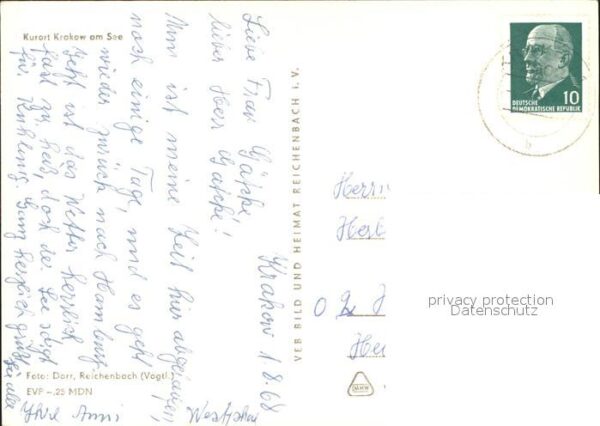 Kurort Krakow am See
Krakow 1.8.68
Liebe Frau
lieber Herr
Nun ist meine Zeit hier abgelaufen,
noch einige Tage, und es geht
wieder zurück nach Hamburg.
Jetzt ist das Wetter herrlich
fast zu heiß, doch der See sorgt
für Kühlung. Ganz herzlich grüßt
Sie alle
Ihre Anni
Foto: Darr, Reichenbach (Vogtl.)
EVP –,25 MDN
VEB BILD UND HEIMAT REICHENBACH i. V.
DEUTSCHE
DEMOKRATISCHE REPUBLIK
10
b
Herrn
privacy protection
Datenschutz